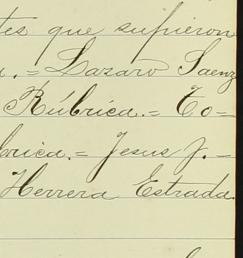 tes que supieron
a.= Lazaro Saenz
Rúbrica.= To=
brica.= Jesus J.=
Herrera Estrada